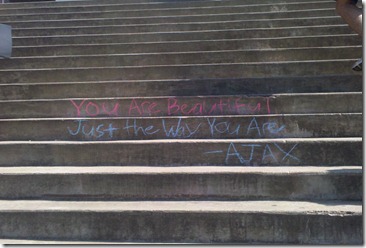 You Are Beautiful
Just the Way You Are
-AJAX